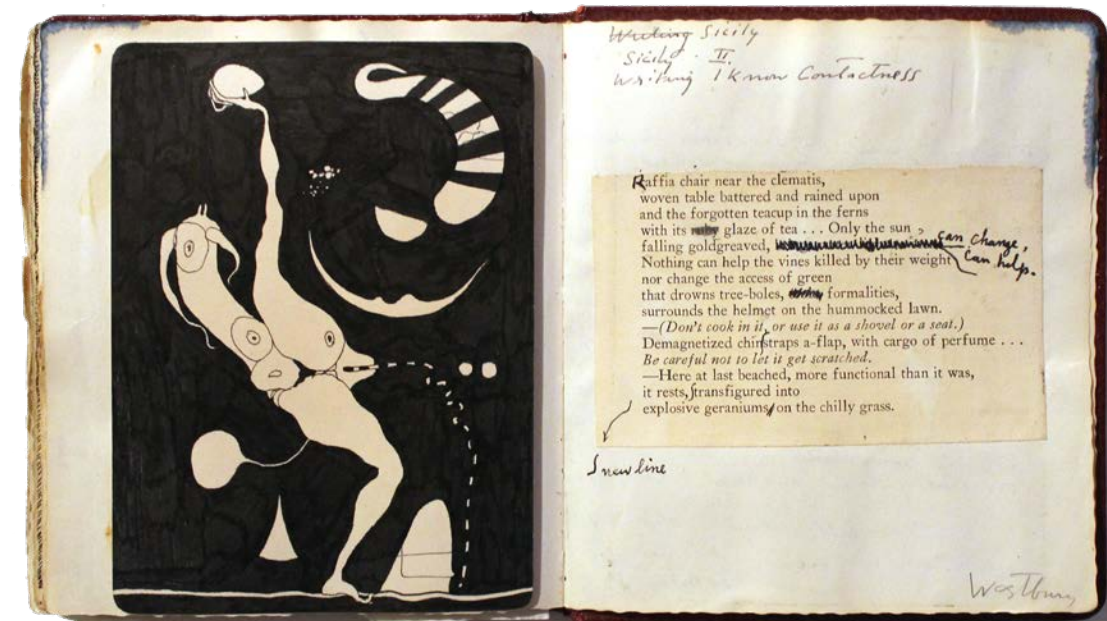 Writing Sicily
Sicily . II.
Writing I Know Contactness
Raffia chair near the clematis,
woven table battered and rained upon
and the forgotten teacup in the ferns
with its glaze of tea . . . Only the sun ,
falling goldgreaved, can change,
Nothing can help the vines killed by their weight can help.
nor change the access of green
that drowns tree-boles, formalities,
surrounds the helmet on the hummocked lawn.
—(Don't cook in it, or use it as a shovel or a seat.)
Demagnetized chinstraps a-flap, with cargo of perfume . . .
Be careful not to let it get scratched.
—Here at last beached, more functional than it was,
it rests, transfigured into
explosive geraniums on the chilly grass.
new line
Westbury